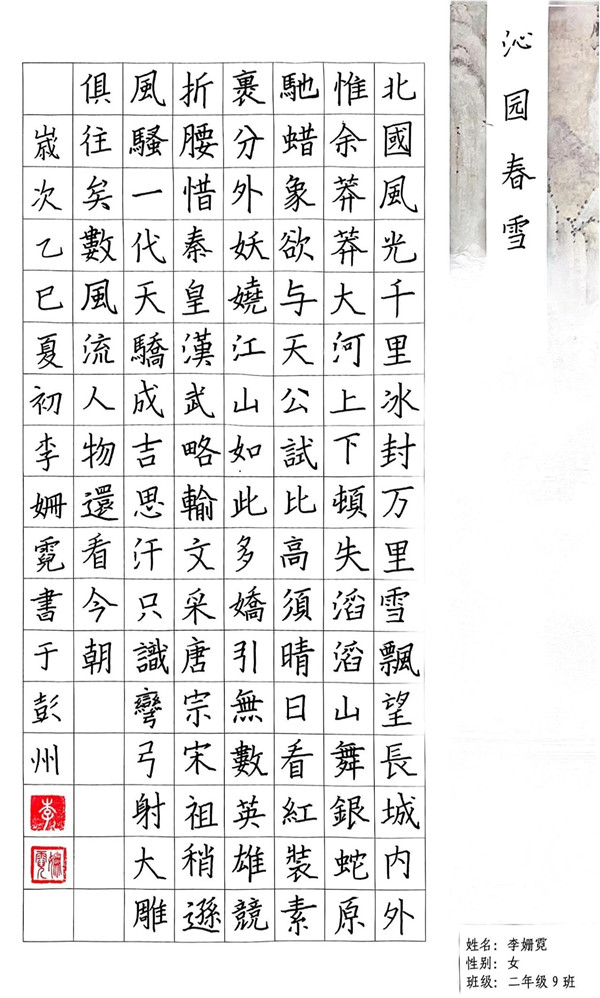 沁园春雪
北國風光千里冰封万里雪飄望長城内外
惟余莽莽大河上下頓失滔滔山舞銀蛇原
馳蜡象欲与天公試比高須晴日看紅裝素
裹分外妖嬈江山如此多嬌引無數英雄競
折腰惜秦皇漢武略輸文采唐宗宋祖稍遜
風騷一代天驕成吉思汗只識彎弓射大雕
俱往矣數風流人物還看今朝
嵗次乙巳夏初李姍霓書于彭州
李
姍霓
姓名：李姗霓
性别：女
班级：二年级9班